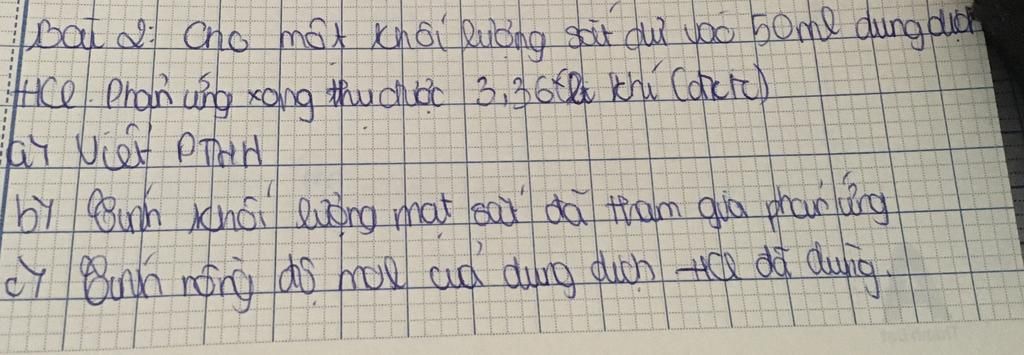 Bài 2: Cho một khối lượng sắt dư vào 50ml dung dịch
HCl. Phản ứng xong thu được 3,36 lít khí (đktc)
a) Viết PTHH
b) Tính khối lượng mạt sắt đã tham gia phản ứng
c) Tính nồng độ mol của dung dịch HCl đã dùng.